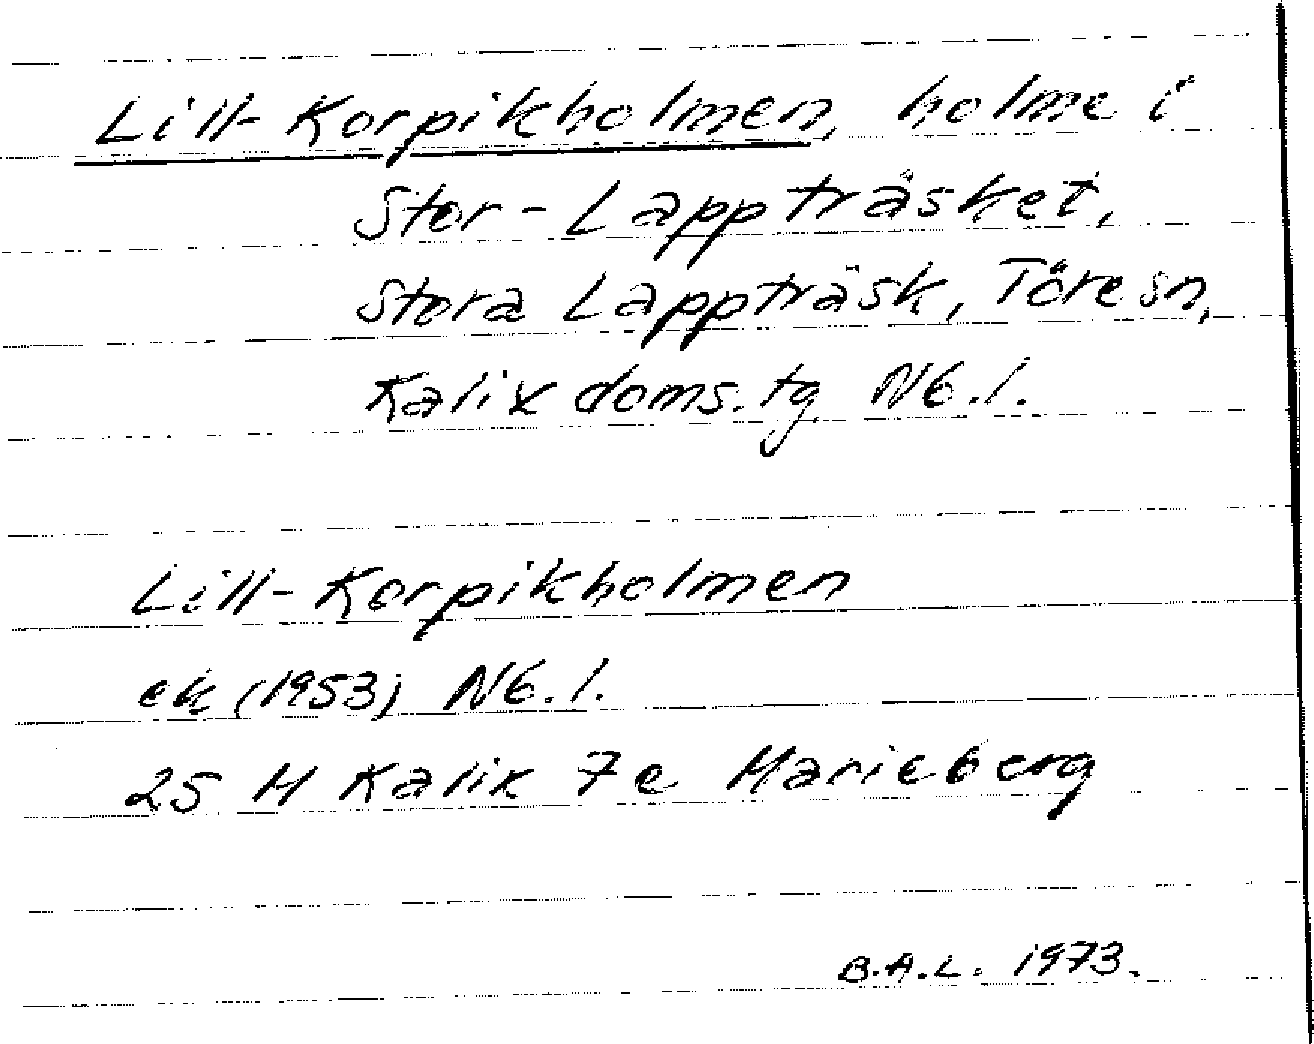 Lill-Korpikholmen, holme i
Stor-Lappträsket,
Stora Lappträsk, Töre sn,
Kalix doms.tg Nb.l.
Lill-Korpikholmen
ek (1953) Nb.l.
25 M Kalix 7e Marieberg
B.A.L. 1973.